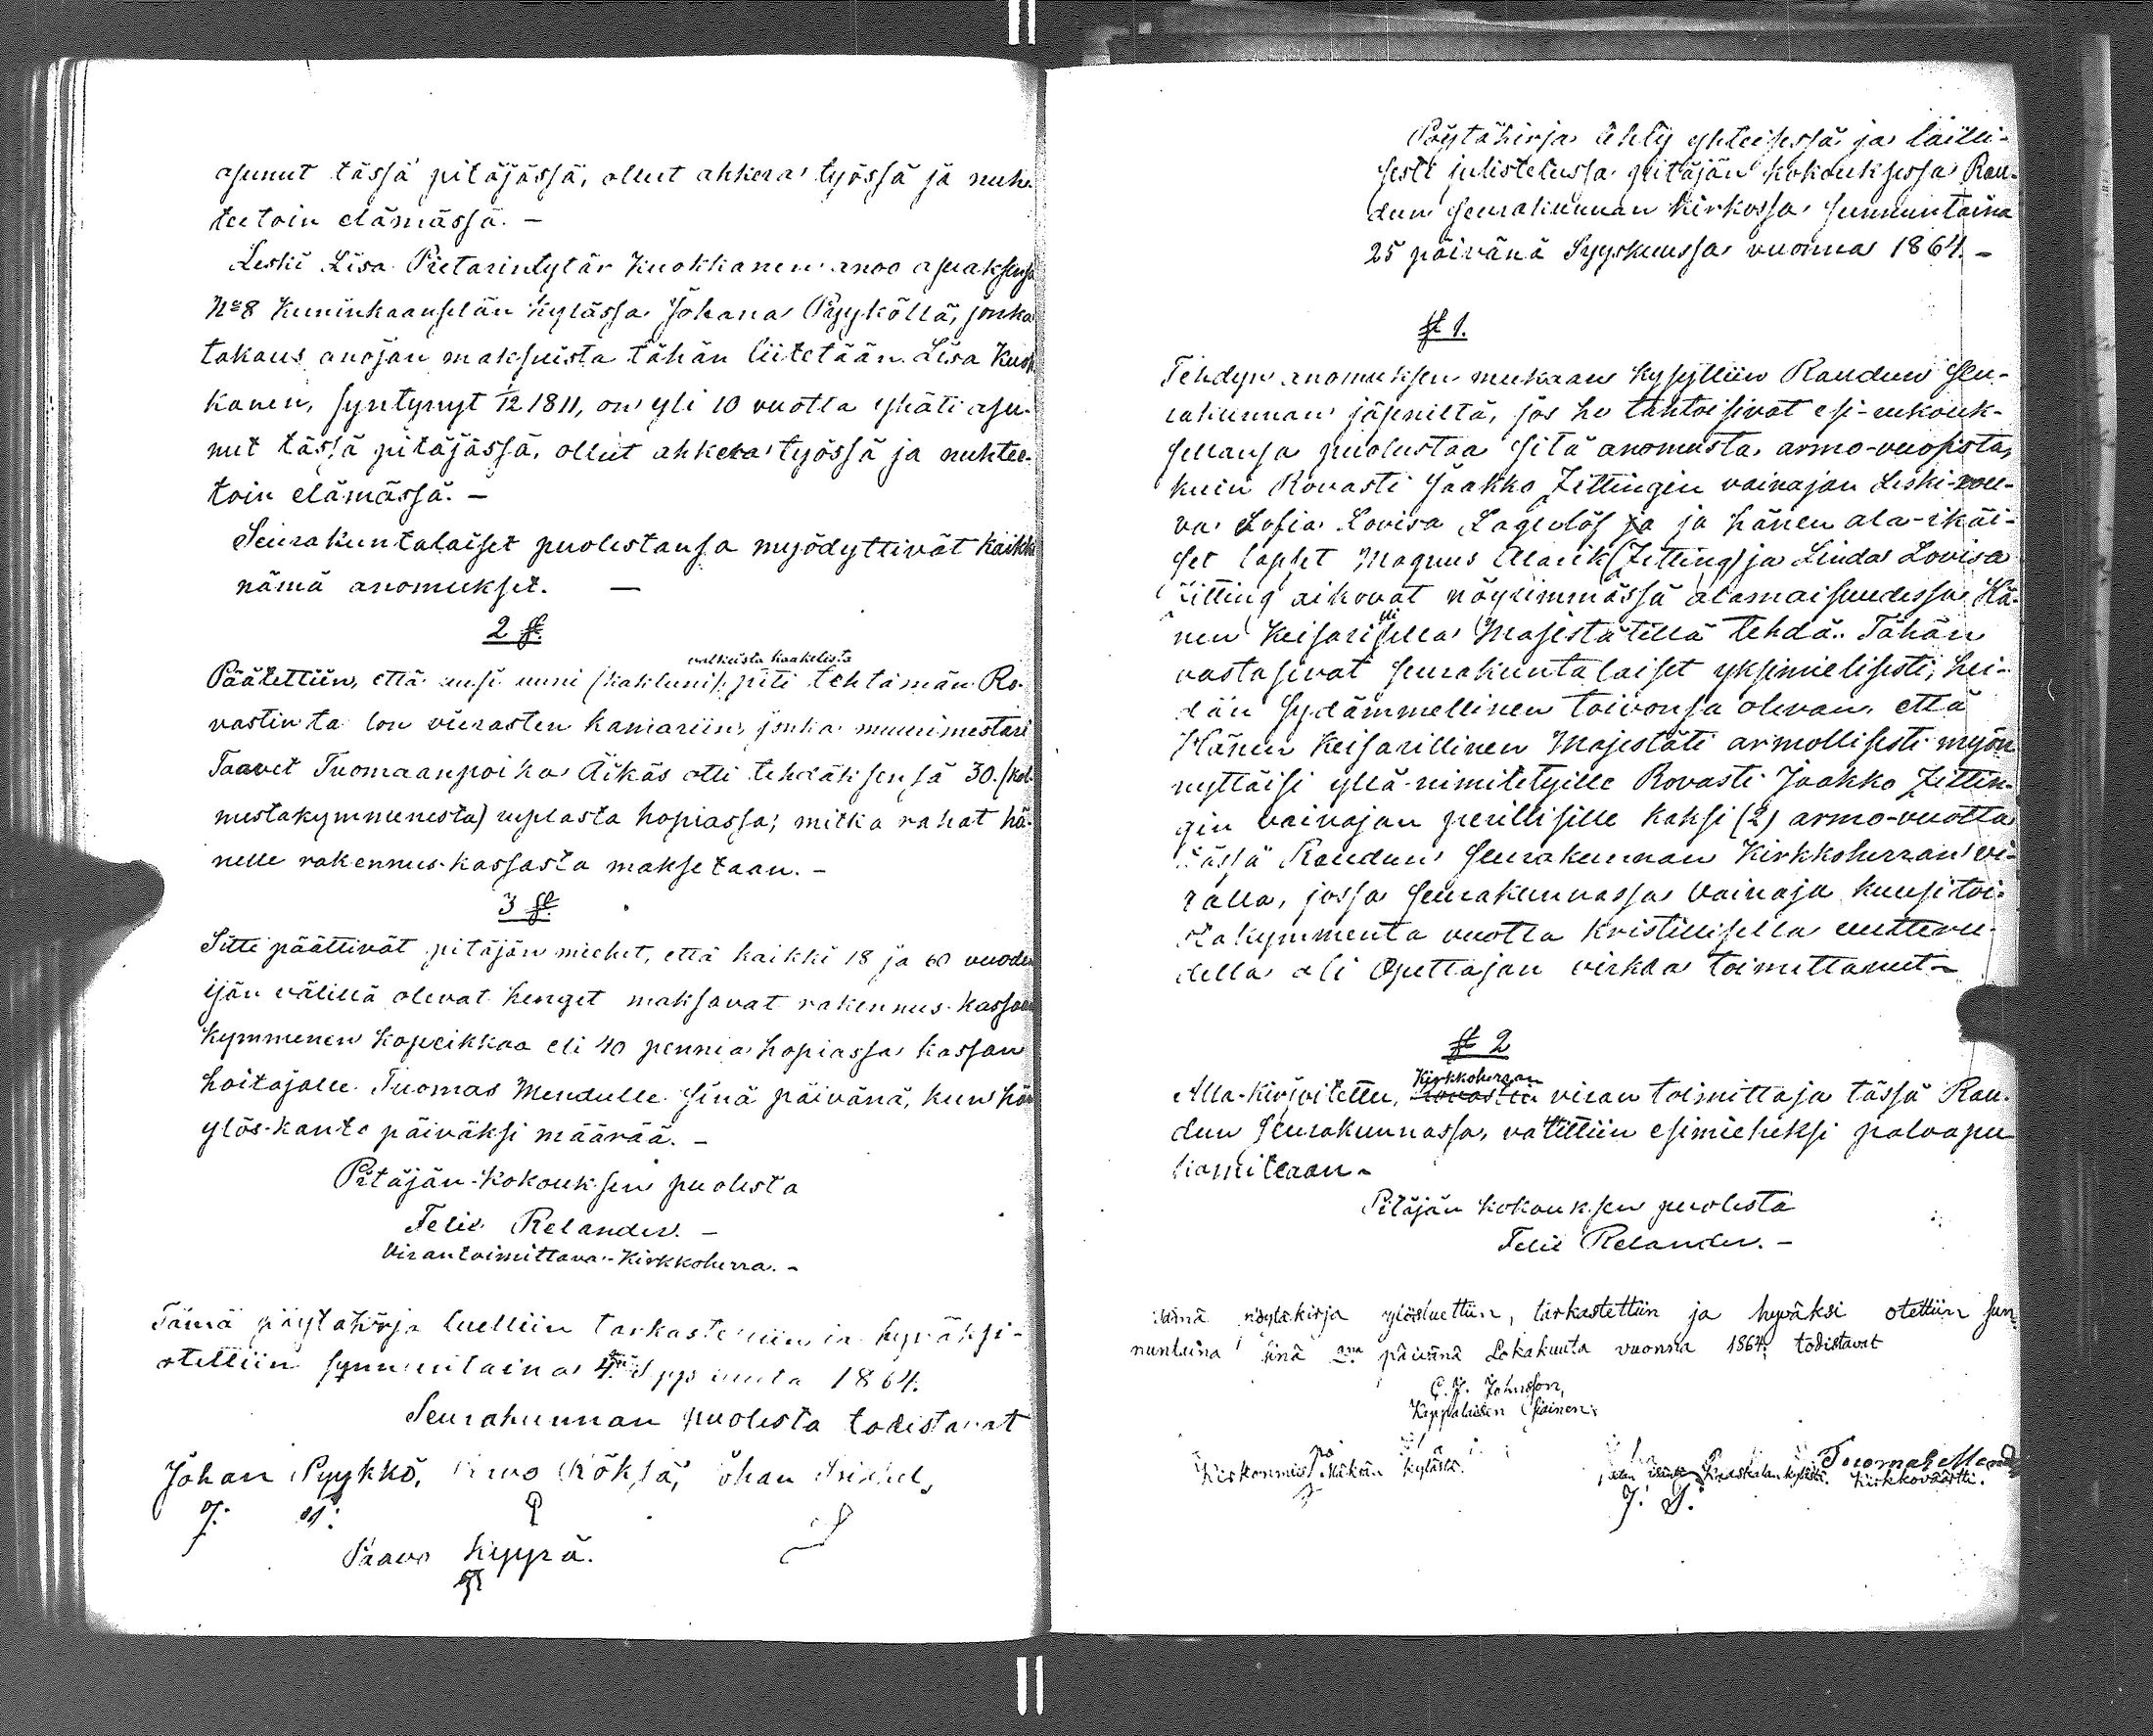 asunut tässä pitäjässä, ollut ahkera työssä ja nuh-
teetoin elämässä. -
Leski Lisa Pietarintytär Kuokkanen anoo asuaksensa
No 8 Kuninkaanselän kylässä Johana Pyyköllä, jonka
takaus anojan maksuista tähän liitetään. Lisa Kuok
kanen, syntynyt 1/12 1811, on yli 10 vuotta yhäti asu-
nut tässä pitäjässä, ollut ahkera työssä ja nuhtee-
toin elämässä. -
Seurakuntalaiset puolestansa myödyttivät kaikki
nämä anomukset. —
2 §.
valkeista kaakelista
Päätettiin, että uusi uuni (kakluni) piti tehtämän Ro-
vastin talon vierasten kamariin, jonka muurimestari
Taavet Tuomaanpoika Äikäs otti tehdäksensä 30. (kol-
mestakymmenestä) ruplasta hopiassa; mitkä rahat hä-
nelle rakennus-kassasta maksetaan. -
3 §.
Sitte päättivät pitäjän miehet, että kaikki 18 ja 60 vuoden
ijän välillä olevat henget maksavat rakennus-kassaan
kymmenen kopeikkaa eli 40 penniä hopiassa kassan
hoitajalle Tuomas Mendulle sinä päivänä, kun hän
ylös-kanto päiväksi määrää. -
Pitäjän-kokouksen puolesta
Felix Relander. -
Virantoimittava-Kirkkoherra. -
Tämä pöytäkirja luettiin tarkastettiin ja hyväksi-
otettiin sunnuntaina 4 Syyskuuta 1864.
Seurakunnan puolesta todistavat
Johan Pyykkö, Köksä, Johan
Paavo Kyyrä.
Pöytäkirja tehty yhteisessä ja lailli-
sesti julistetussa pitäjän kokouksessa Rau-
dun seurakunnan kirkossa sunnuntaina
25 päivänä Syyskuussa vuonna 1864. -
§ 1.
Tehdyn anomuksen mukaan kysyttiin Raudun seu-
rakunnan jäseniltä, jos he tahtoisivat esi-rukouk-
sellansa puolustaa sitä anomusta armo-vuosista,
kuin Rovasti Jaakko Zittingin vainajan Leski-rou-
va Sofia Lovisa Lagerlöf ja ja hänen ala-ikäi-
set lapset Magnus Alarik (Zitting) ja Linda Lovisa
Zitting aikovat nöyrimmässä alamaisuudessa Hä-
nen Keisarilliselle Majestätillä tehdä. Tähän
vastasivat seurakuntalaiset yksimielisesti, hei-
dän sydämmellinen toivonsa olevan, että
Hänen Keisarillinen Majestäti armollisesti myön-
nyttäisi yllä-nimitetyille Rovasti Jaakko Zittin-
gin vainajan perillisille kaksi (2) armo-vuotta
tässä Raudun seurakunnan Kirkkoherran vi-
ralla, jossa seurakunnassa vainaja kuusitoi-
stakymmentä vuotta kristillisellä uuttteru-
della oli Opettajan virkaa toimittanut -
§ 2
Kirkkoherran
Alla-kirjoitettu, viran toimittaja tässä Rau-
dun seurakunnassa, valittiin esimieheksi palvapu-
komiteaan -
Pitäjän kokouksen puolesta
Felix Relander. -
Tämä pöytäkirja ylösluettiin, tarkastettiin ja hyväksi otettiin sun
nuntaina sinä 2na päivänä Lokakuuta vuonna 1864, todistavat
C. J. Johnsson,
Kappalaisen
Kirkonmies Mäkrän kylästä.
Tuomas Mendu
Kirkkoväärtti.
J. S.